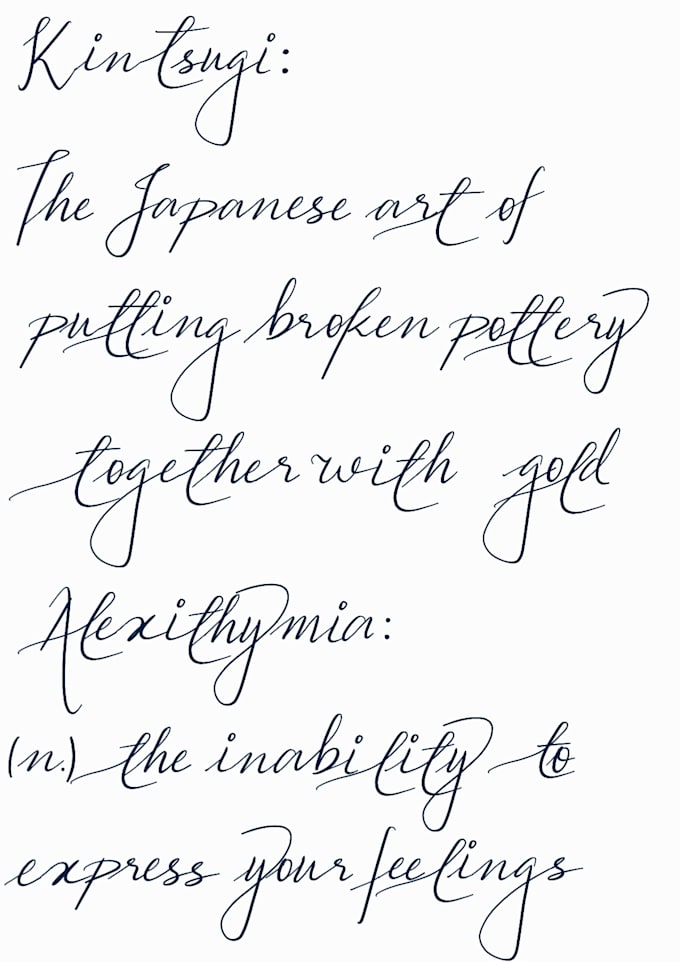 Kintsugi:
The Japanese art of
putting broken pottery
together with gold
Alexithymia:
(n.) the inability to
express your feelings